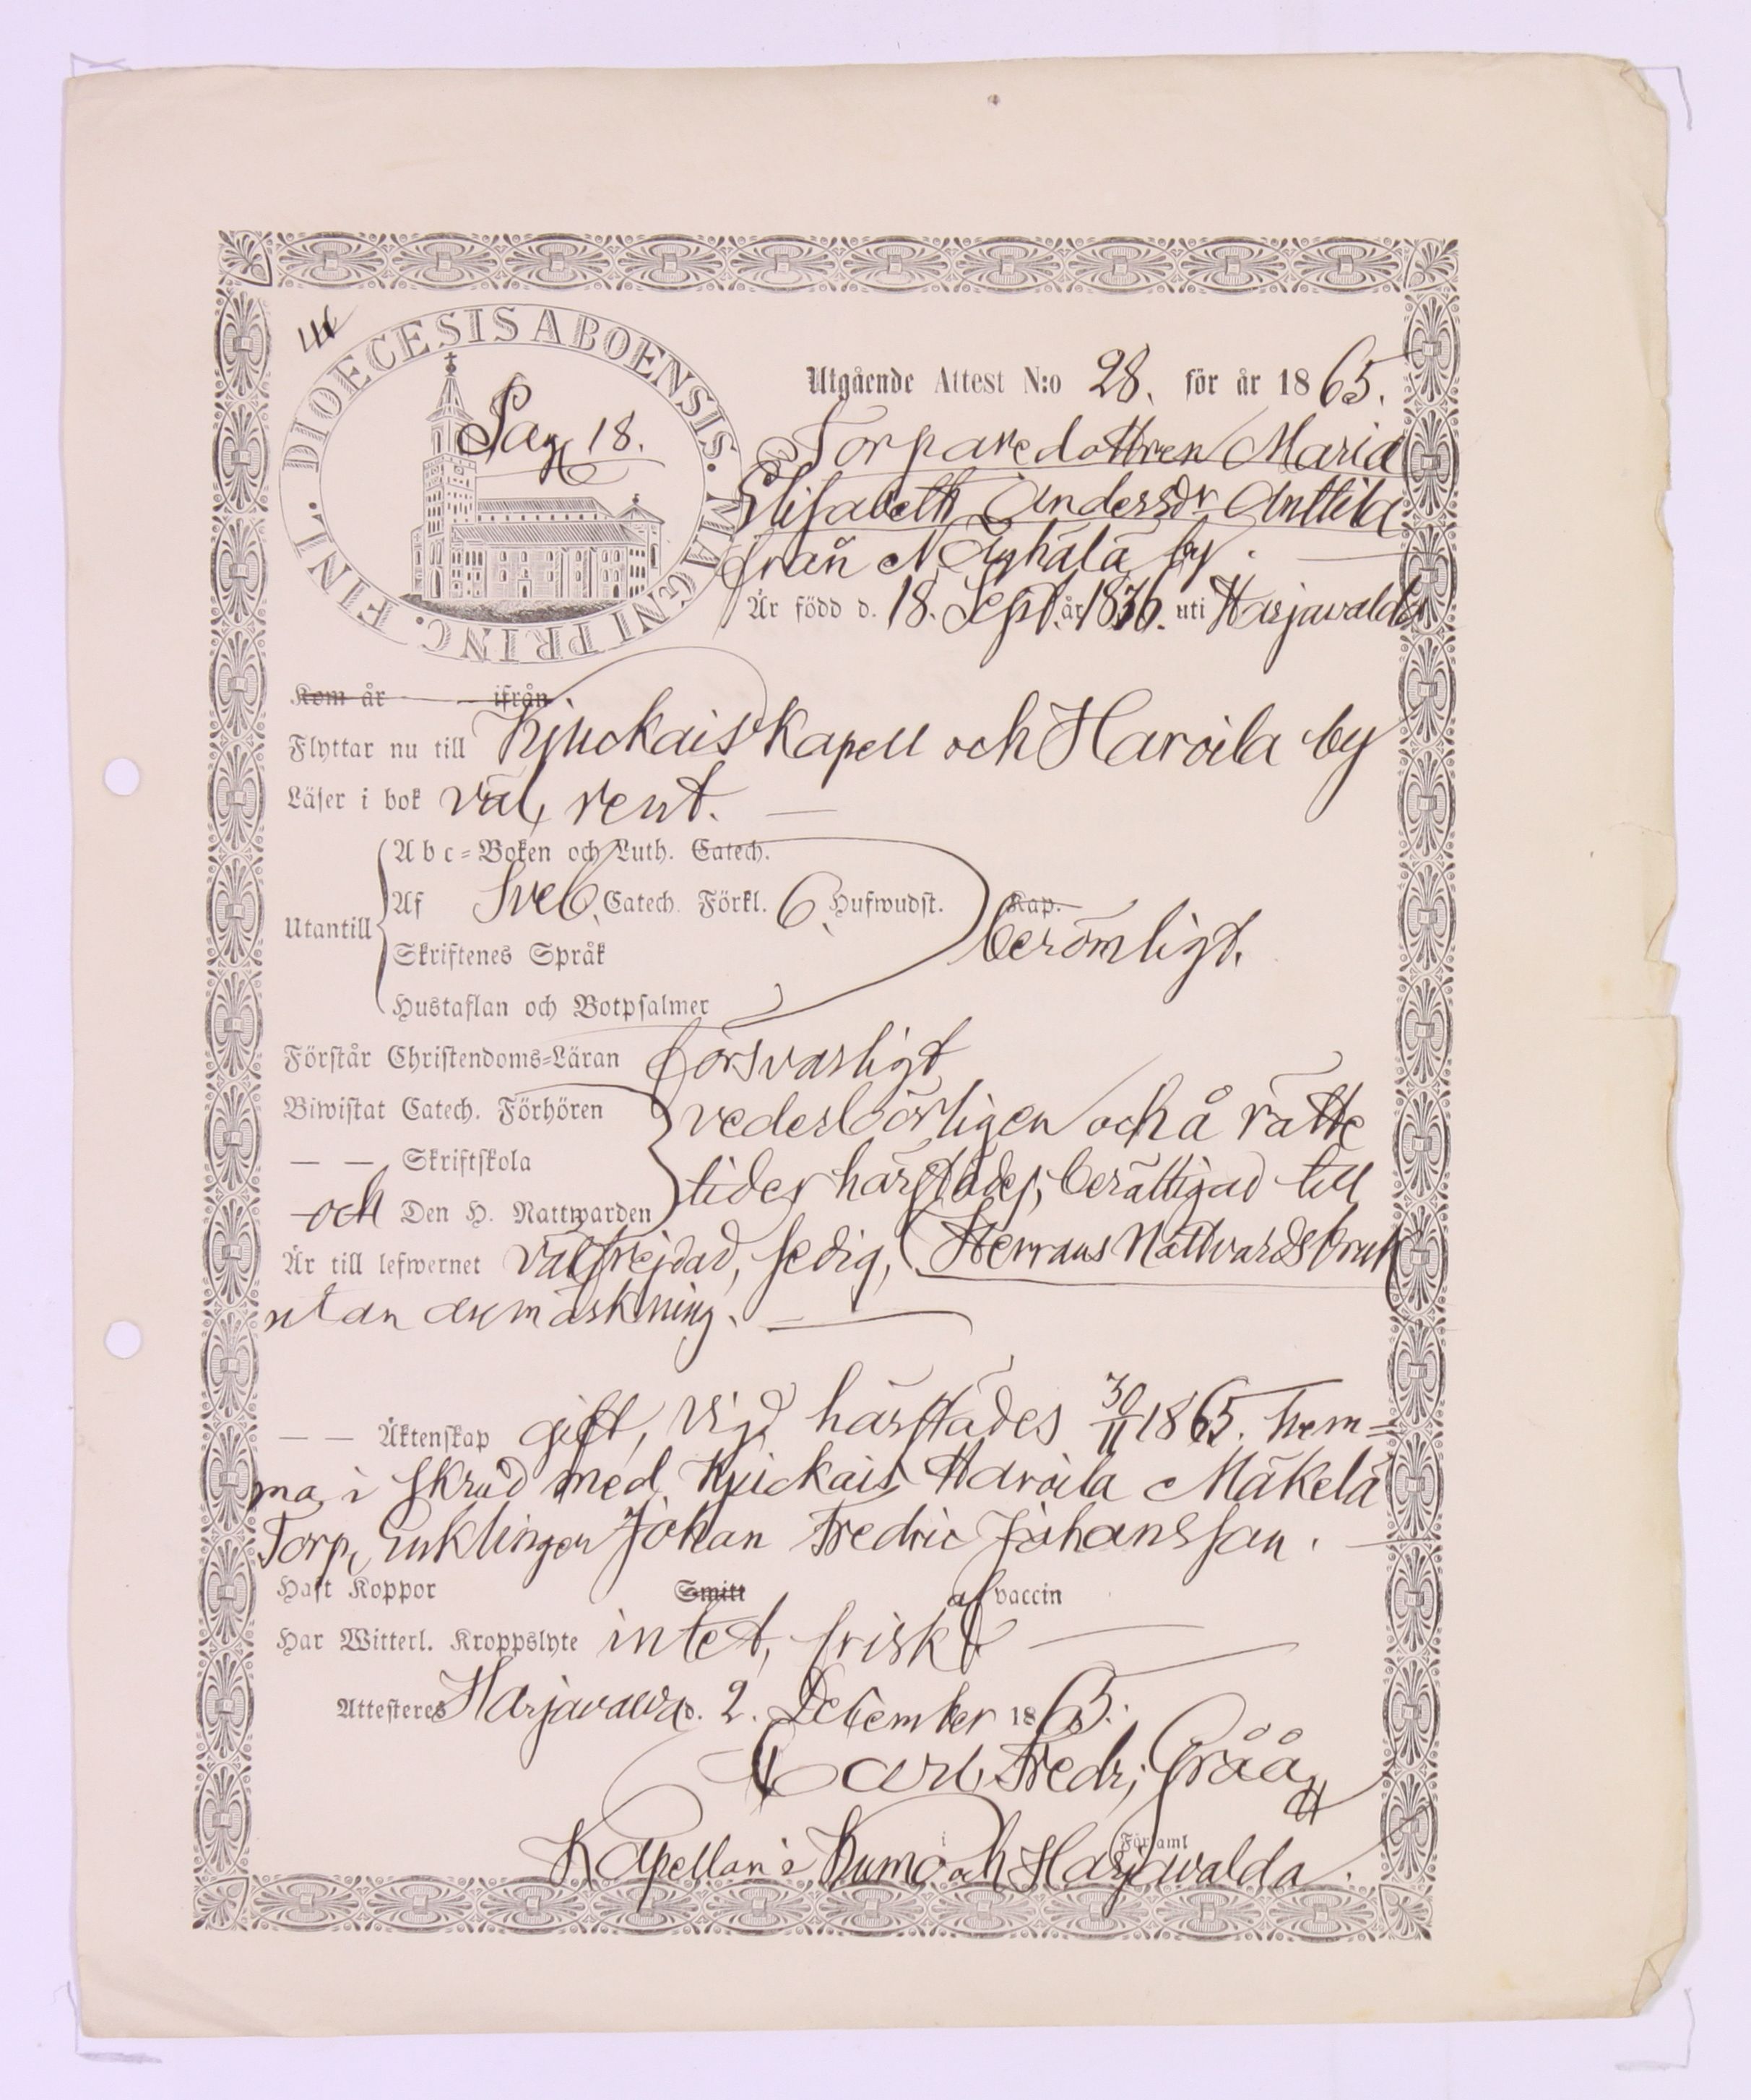 DIOECESIS ABOENSIS. MAGNI PRINC. FINL.
Pag 18.
Utgående Attest N:o 28. för år 1865.
Torparedottren Maria
Elisabeth Andersdr Anttila
från N. by.
Är född d. 18. Sept. år 1836. uti Harjawalda
Kom år ifrån
Flyttar nu till Kjuckais Kapell och Haroila by
Läser i bok väl, rent.
Abc-Boken och Luth. Catech.
Utantill Af Sveb. Catech. Förkl. 6. Hufwudst. Kap. berömligt.
Skriftenes Språk
Hustaflan och Botpsalmer
Förstår Christendoms-Läran försvarligt
Biwistat Catech. Förhören vederbörligen och å rätte
— — Skriftskola tider härstädes, berättigad till
och Den H. Nattwarden
Är till lefwernet välfrejdad, sedig, Herrans Nattvardsbruk
utan anmärkning.
— — Äktenskap gift, vigd härstädes 30/11 1865. hem=
ma i skrud med Kjuckais Haroila Mäkelä
Torp. Enklingen Johan Fredric Johansson.
Haft Koppor Smitt af vaccin
Har Witterl. Kroppslyte intet, frisk
Attesteres Harjavalda d. 2. December 1865.
Carl Fredr. Gråå
Kapellan i Kumo och Harjawalda.
i Församl